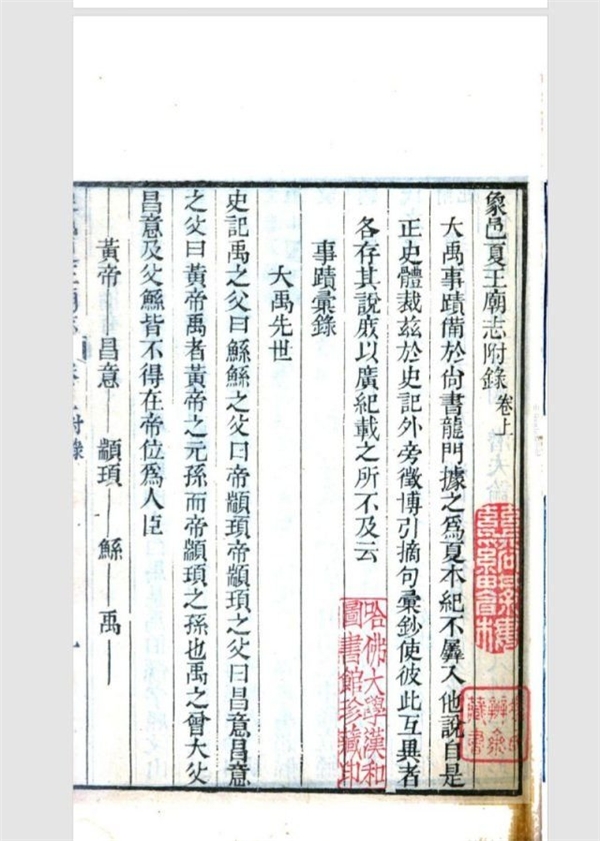 象邑夏王廟志附錄 卷上
大禹事蹟備於尚書龍門據之為夏本紀不羼入他說自是
正史體裁茲於史記外旁徵博引摘句彙鈔使彼此互異者
各存其說庶以廣紀載之所不及云
事蹟彙錄
大禹先世
史記禹之父曰鯀鯀之父曰帝顓頊帝顓頊之父曰昌意昌意
之父曰黃帝禹者黃帝之元孫而帝顓頊之孫也禹之曾大父
昌意及父鯀皆不得在帝位為人臣
黃帝——昌意——顓頊——鯀——禹——
哈佛大學漢和
圖書館珍藏印
藏書
附錄